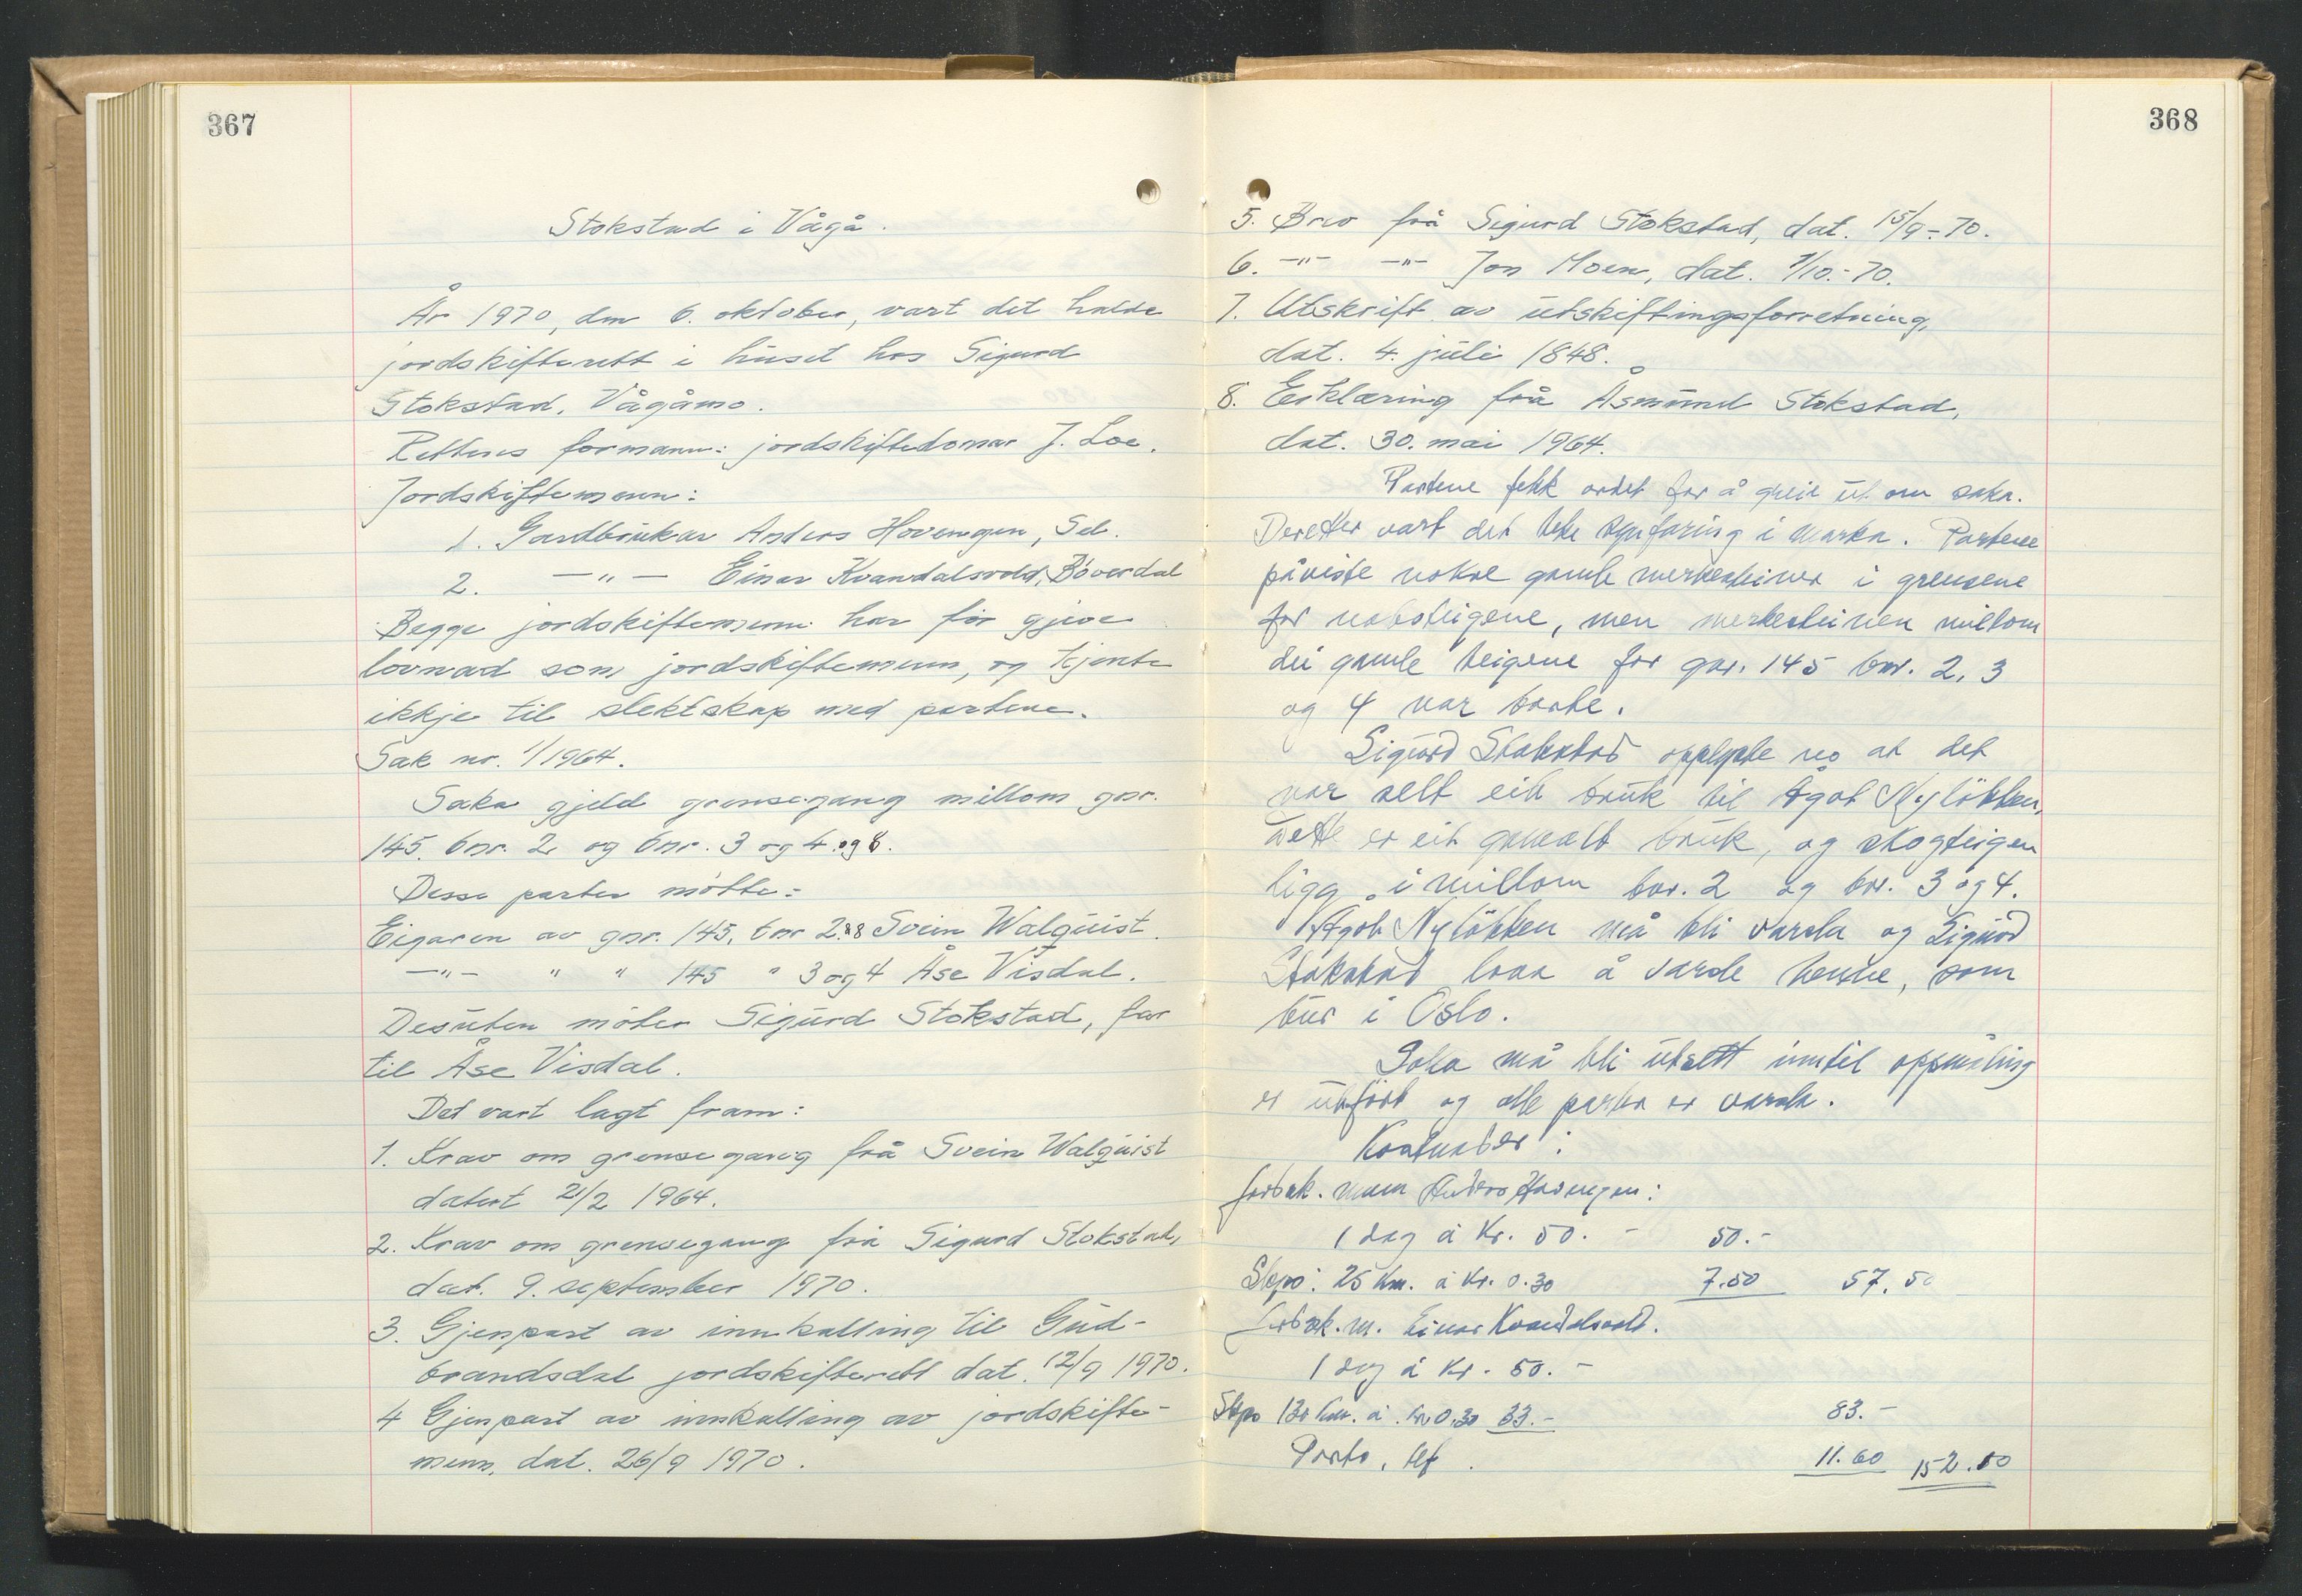 367
Stokstad i Vågå.
År 1970, den 6. oktober, vart det halde
jordskifterett i huset hos Sigurd
Stokstad, Vågåmo.
Rettens formann: jordskiftedomar J. Loe.
Jordskiftemenn:
1. Gardbrukar Anders Hovengen, Sel.
2. —"— Einar Kvandalsvold, Böverdal
Begge jordskiftemenn har för gjeve
lovnad som jordskiftemenn, og kjente
ikkje til slektskap med partene.
Sak nr. 1/1964.
Saka gjeld grensegang millom gnr.
145. bnr. 2 og bnr. 3 og 4 og 8.
Desse parter mötte:
Eigaren av gnr. 145, bnr 2 Svein Walquist.
—"— " " 145 " 3 og 4 Åse Visdal.
Desuten möter Sigurd Stokstad, far
til Åse Visdal.
Det vart lagt fram:
1. Krav om grensegang frå Svein Walquist
datert 21/2 1964.
2. Krav om grensegang frå Sigurd Stokstad,
dat. 9. september 1970.
3. Gjenpart av innkalling til Gud-
brandsdal jordskifterett dat. 12/9 1970.
4 Gjenpart av innkalling av jordskifte-
menn, dat. 26/9 1970.
368
5. Brev frå Sigurd Stokstad, dat. 15/9-70.
6. —"— —"— Jon Moen, dat. 1/10.-70.
7. Utskrift av utskiftingsforretning,
dat. 4. juli 1848.
8. Erklæring frå Åsmund Stokstad,
dat. 30. mai 1964.
Partene fekk ordet for å greie ut om saka.
Deretter vart det synfaring i marka. Partene
påviste nokre gamle merkesteiner i grensene
for naboteigene, men merkesteinen millom
dei gamle teigene for gnr. 145 bnr. 2, 3
og 4 var borte.
Sigurd Stokstad opplyste no at det
var selt eit bruk til Ågot Nylökken,
Dette er eit gamalt bruk, og skogteigen
ligg i millom bnr. 2 og bnr. 3 og 4.
Ågot Nylökken må bli varsla og Sigurd
Stokstad lova å varsle henne, som
bur i Oslo.
Saka må bli utsett inntil oppmåling
er utfört og alle parter er varsla.
Kostnader:
jordsk. mann Anders Hovengen:
1 dag à kr. 50.- 50.-
Skyss: 25 km. à kr. 0.30 7.50 57.50
Jordsk. m. Einar Kvandalsvold.
1 dag à kr. 50.-
Skyss km. à kr 0.30 33.- 83.-
Porto, tlf. 11.60 152.10